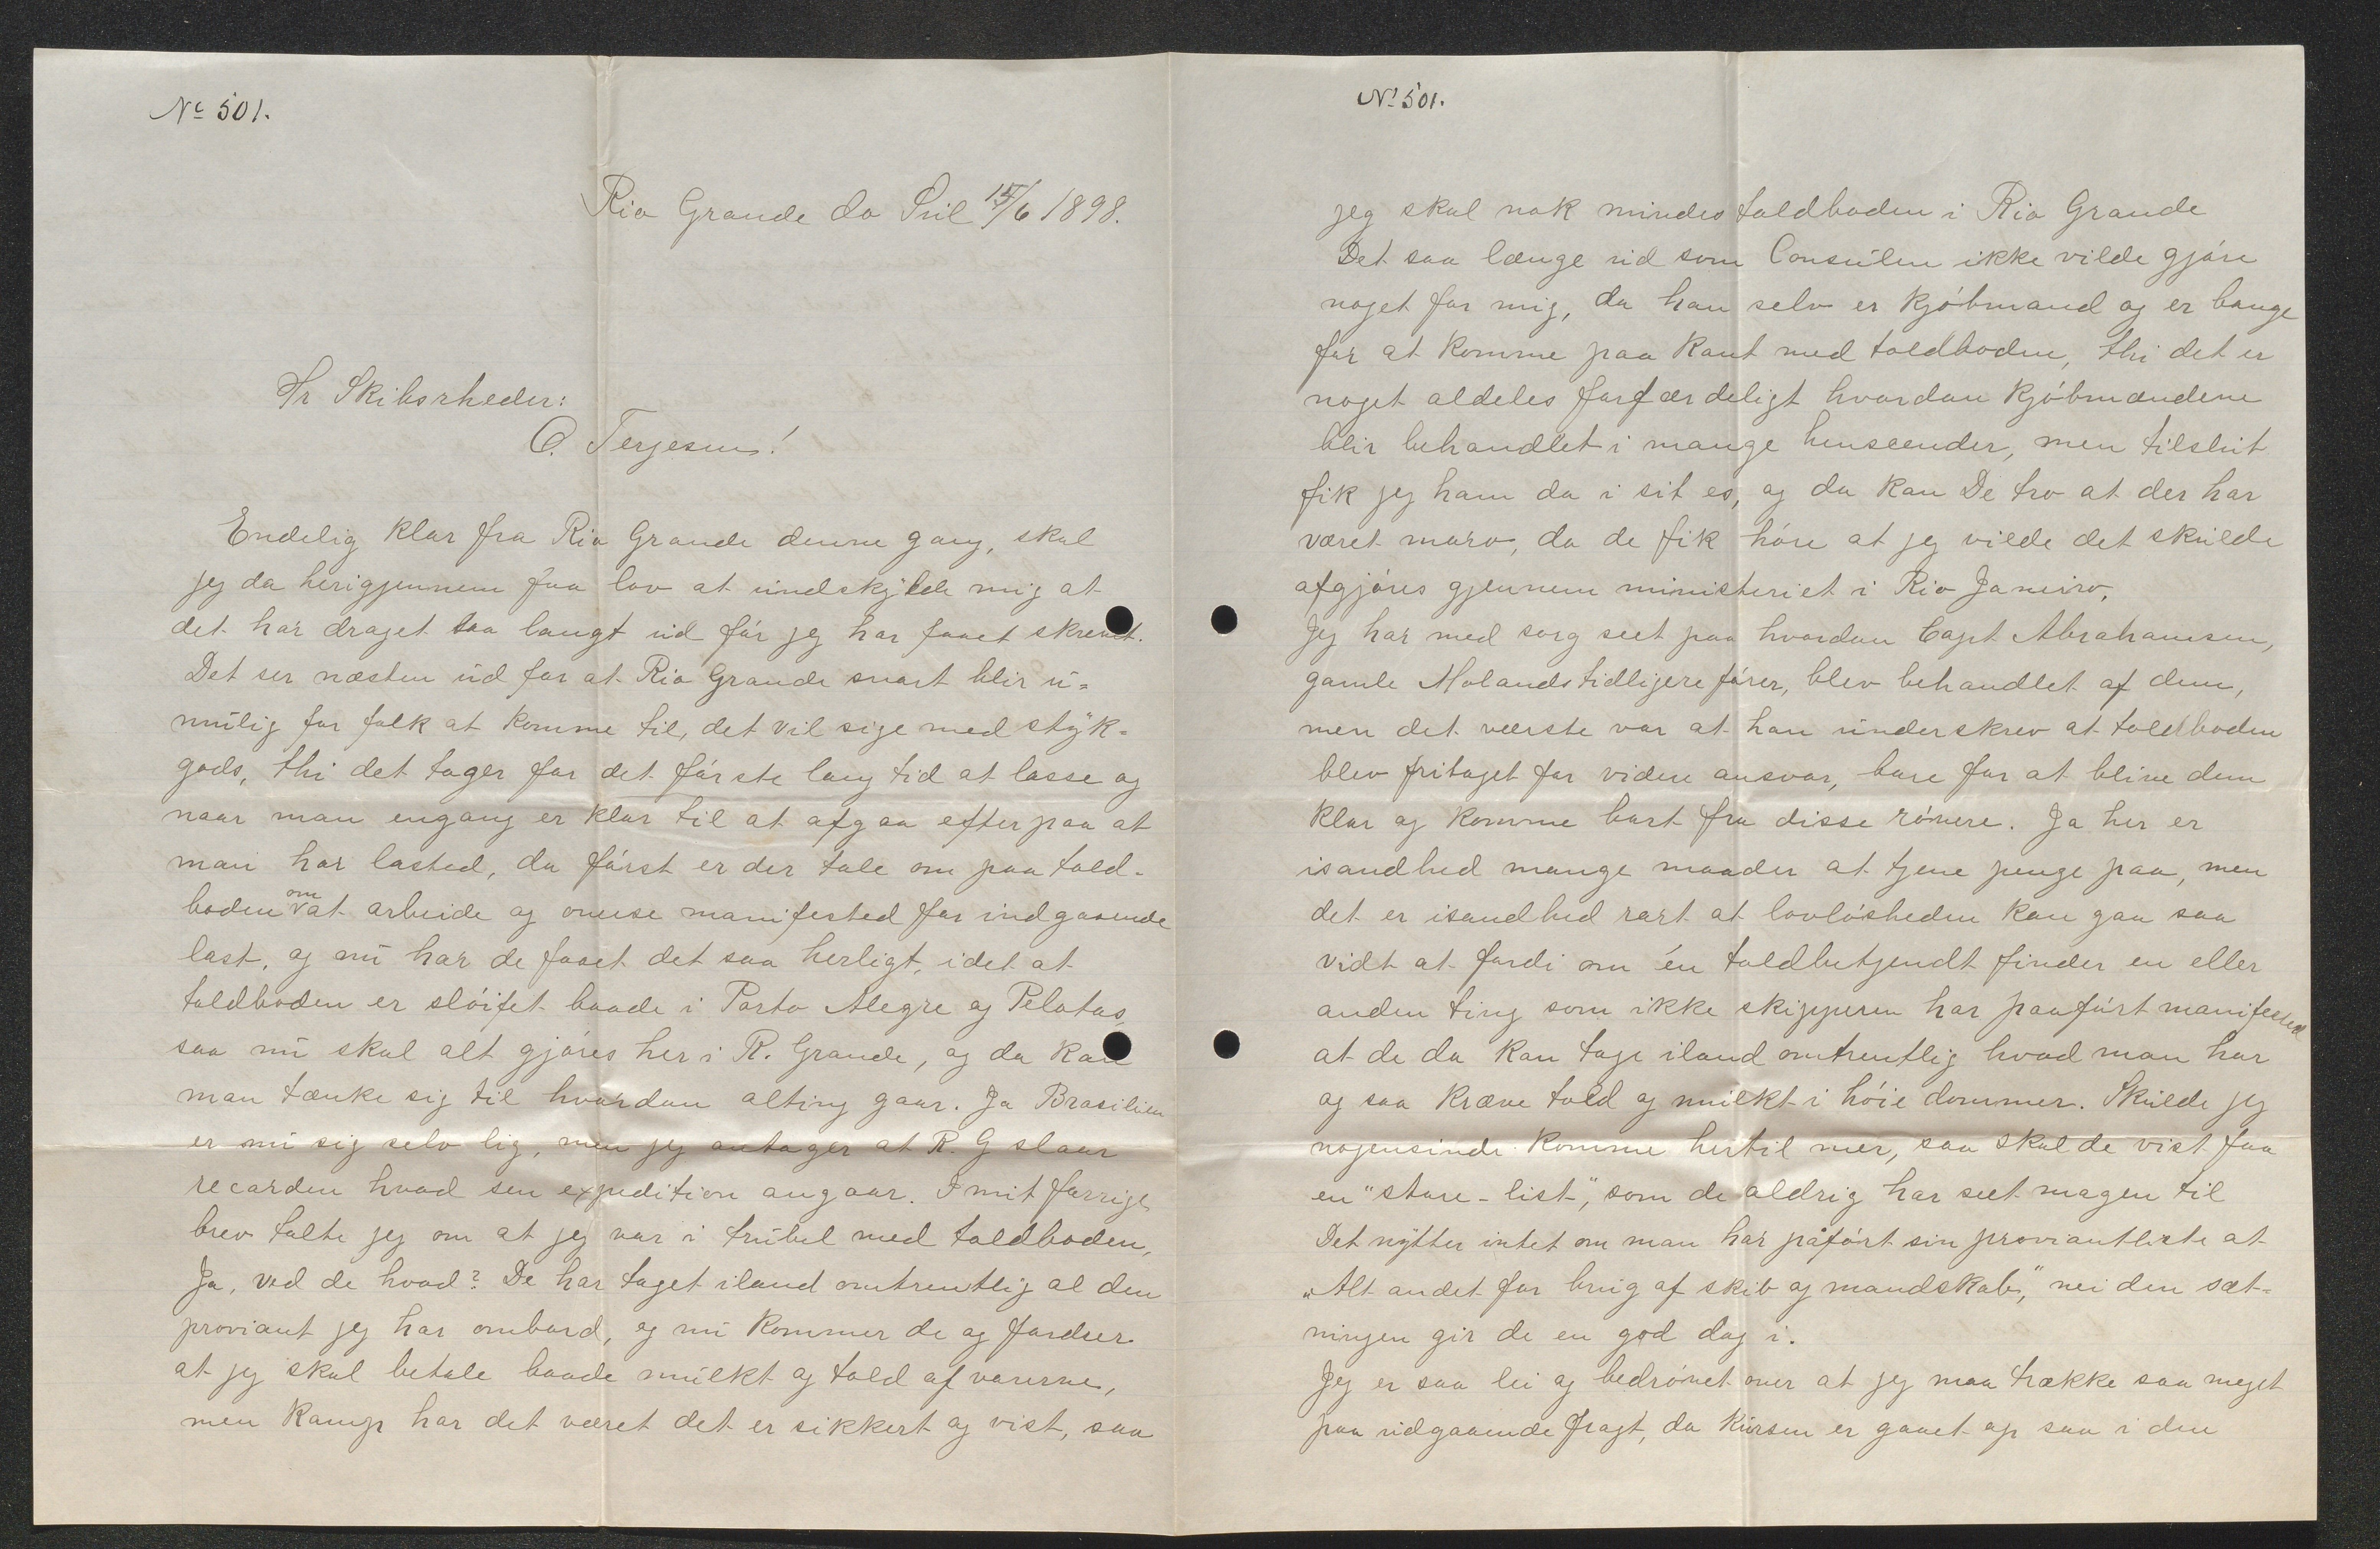 No 501.
Rio Grande do Sul 15/6 1898.
Hr Skibsrheder:
O. Terjesen!
Endelig klar fra Rio Grande denne gang, skal
jeg da herigjennem faa lov at undskylde mig at
det har draget saa langt ud før jeg har faaet skrevet.
Det ser næsten ud for at Rio Grande snart blir u-
mulig for folk at komme til, det vil sige med styk-
gods, thi det tager for det første lang tid at losse og
naar man engang er klar til at afgaa efter paa at
man har lasted, da først er der tale om paa told-
boden om at arbeide og overse manifested for indgaaende
last, og nu har de faaet det saa herligt, idet at
toldboden er sløifet baade i Porto Alegre og Pelotas,
saa nu skal alt gjøres her i R. Grande, og da kan
man tænke sig til hvordan alting gaar. Ja Brasilien
er nu sig selv lig, men jeg antager at R. G slaar
recorden hvad sen expedition angaar. I mit forrige
brev talte jeg om at jeg var i trubel med toldboden,
Ja, ved de hvad? De har taget iland omtrentlig al den
proviant jeg har ombord, og nu kommer de og fordser
at jeg skal betale baade mulkt og told af varerne,
men kamp har det været det er sikkert og vist, saa
No 501.
jeg skal nok mindes toldboden i Rio Grande
Det saa længe ud som Consulen ikke vilde gjøre
noget for mig, da han selv er kjøbmand og er bange
for at komme paa kant med toldboden, thi det er
noget aldeles forfærdeligt hvordan kjøbmændene
blir behandlet i mange henseender, men tilslut
fik jeg ham da i sit es, og da kan De tro at der har
været moro, da de fik høre at jeg vilde det skulde
afgjøres gjennem ministeriet i Rio Janeiro,
Jeg har med sorg seet paa hvordan Capt Abrahamsen,
gamle Molands tidligere fører, blev behandlet af dem,
men det værste var at han underskrev at toldboden
blev fritaget for videre ansvar, bare for at blive dem
klar og komme bort fra disse røvere. Ja her er
isandhed mange maader at tjene penge paa, men
det er isandhed rart at lovløsheden kan gaa saa
vidt at fordi om én toldbetjendt finder en eller
anden ting som ikke skipperen har paaført manifested
at de da kan tage iland omtrentlig hvad man har
og saa kræve told og mulkt i høie dommer. Skulde jeg
nogensinde komme hertil mer, saa skal de vist faa
en "store-list", som de aldrig har seet magen til
Det nytter intet om man har påført sin proviantliste at
"Alt andet for brug af skib og mandskab," nei den sæt-
ningen gir de en god dag i.
Jeg er saa lei og bedrøvet over at jeg maa trække saa meget
paa udgaaende fragt, da kursen er gaaet op saa i den